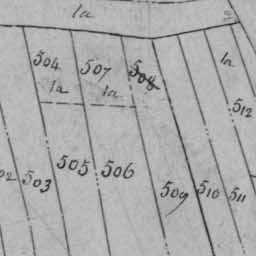 1a
504
507
508
1a
1a
1a
512
505
506
503
509
510
511